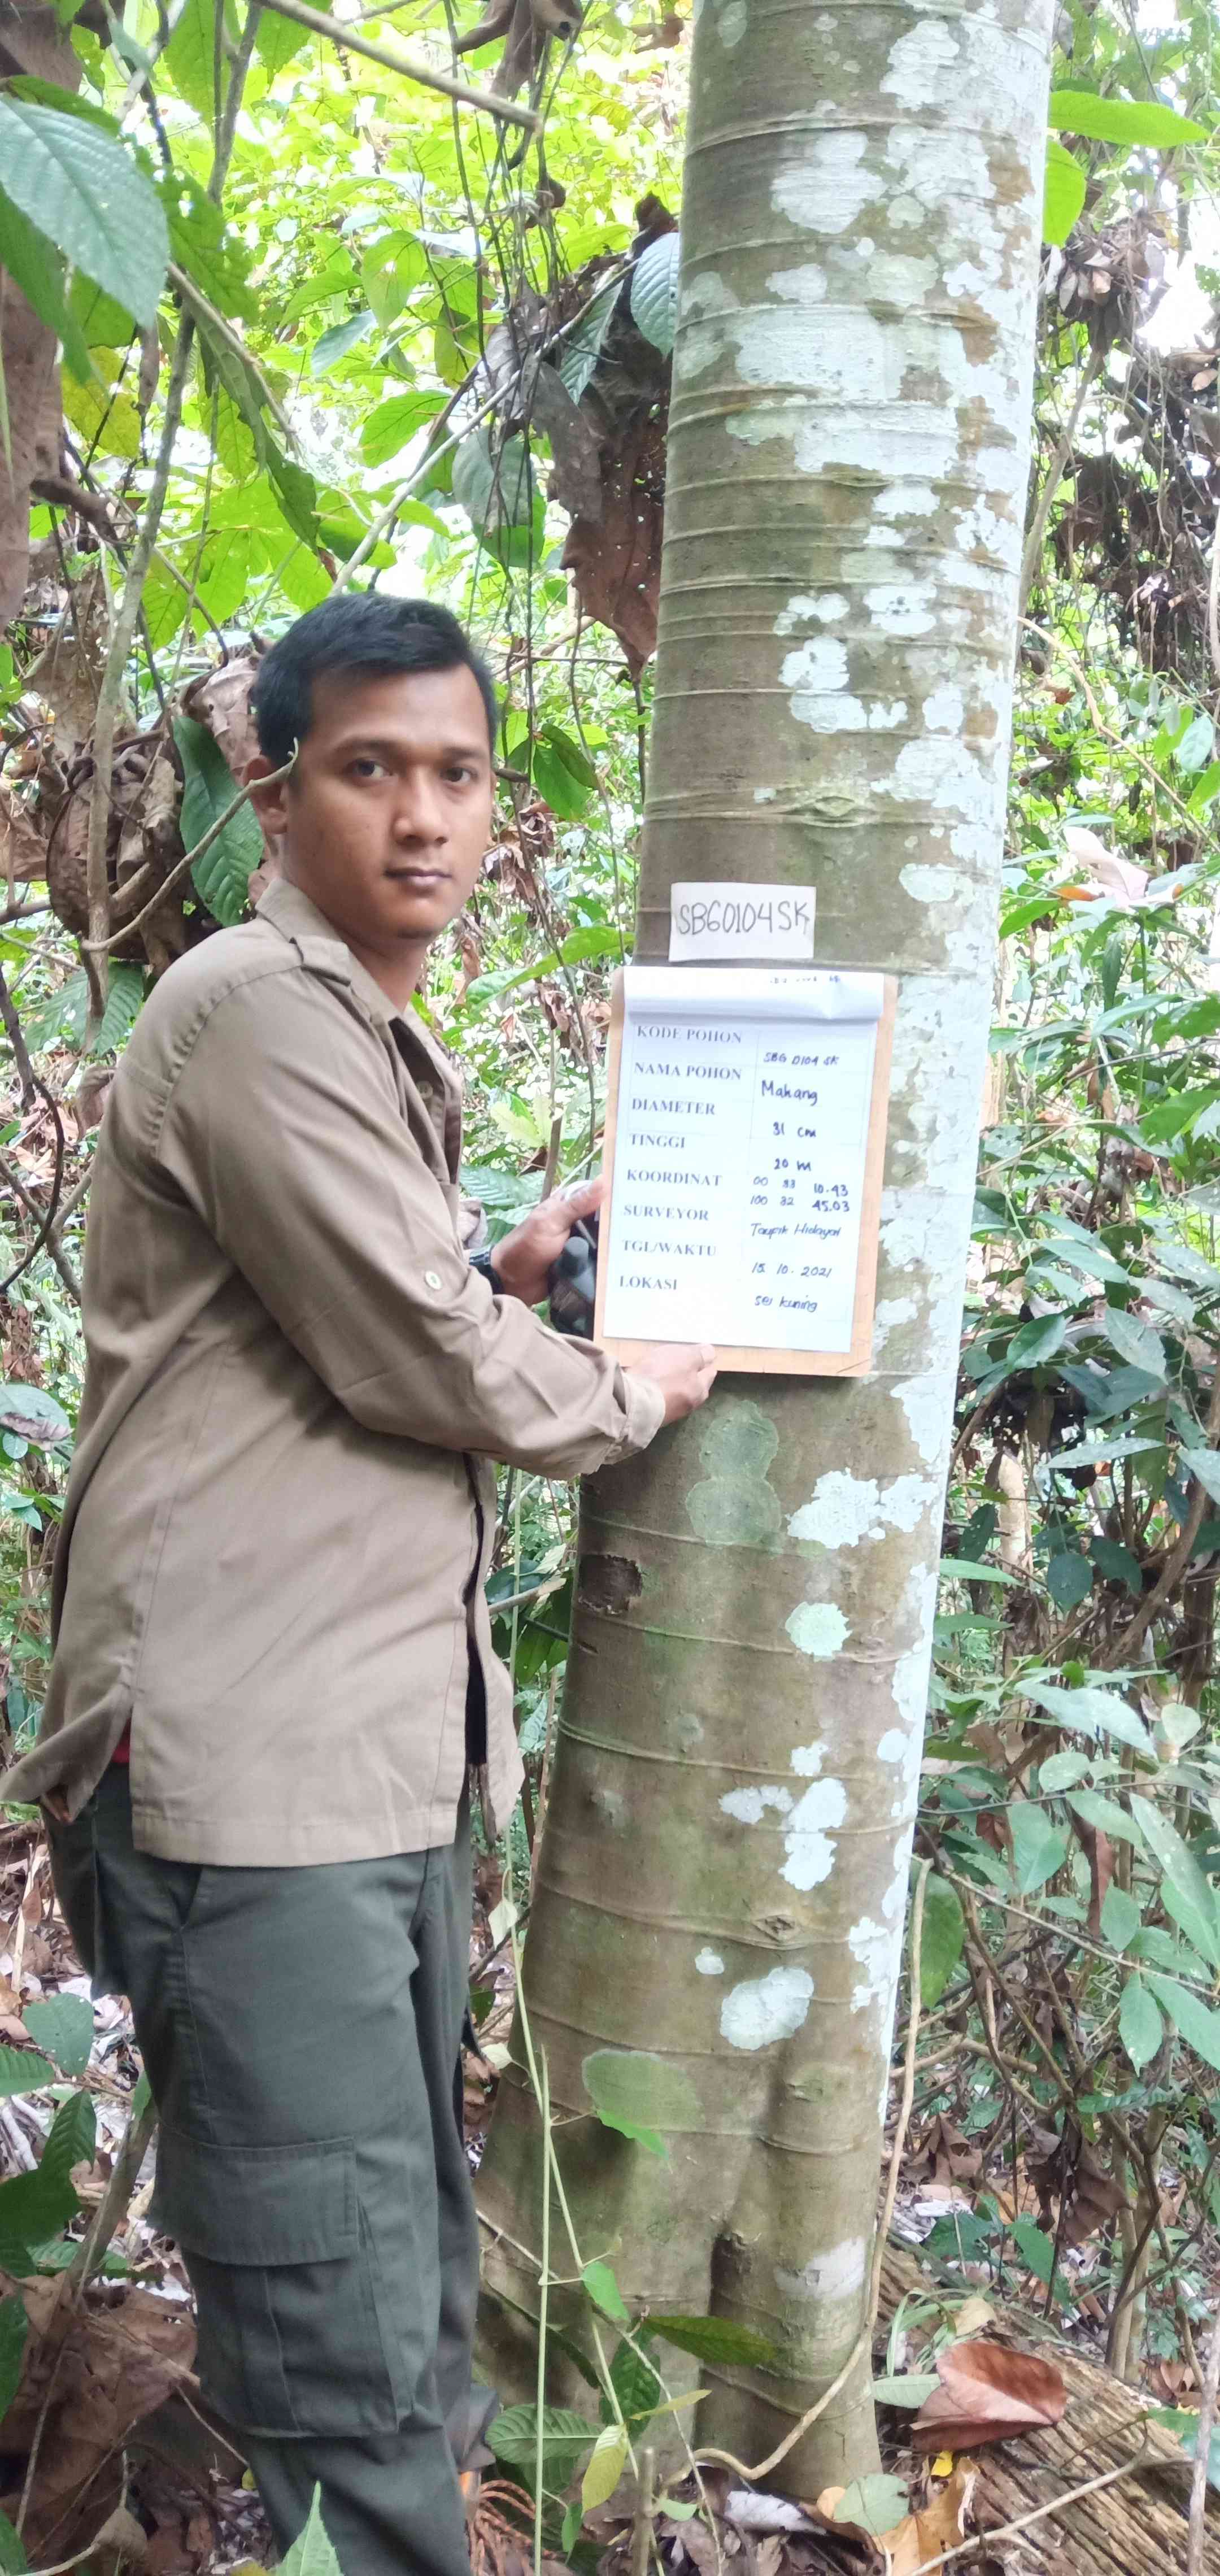 SBG0104SK
KODE POHON SBG 0104 SK
NAMA POHON Mahang
DIAMETER 31 cm
TINGGI 20 m
KOORDINAT 00 33 10.43
100 32 45.03
SURVEYOR Taupik Hidayat
TGL/WAKTU 15 10 - 2021
LOKASI sei kuning